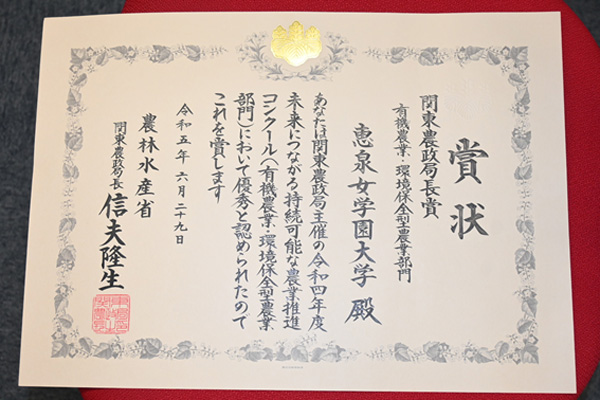 賞状
関東農政局長賞
有機農業・環境保全型農業部門
恵泉女学園大学 殿
あなたは関東農政局主催の令和四年度
未来につながる持続可能な農業推進
コンクール(有機農業・環境保全型農業
部門)において優秀と認められたので
これを賞します
令和五年六月二十九日
農林水産省
関東農政局長 信夫隆生